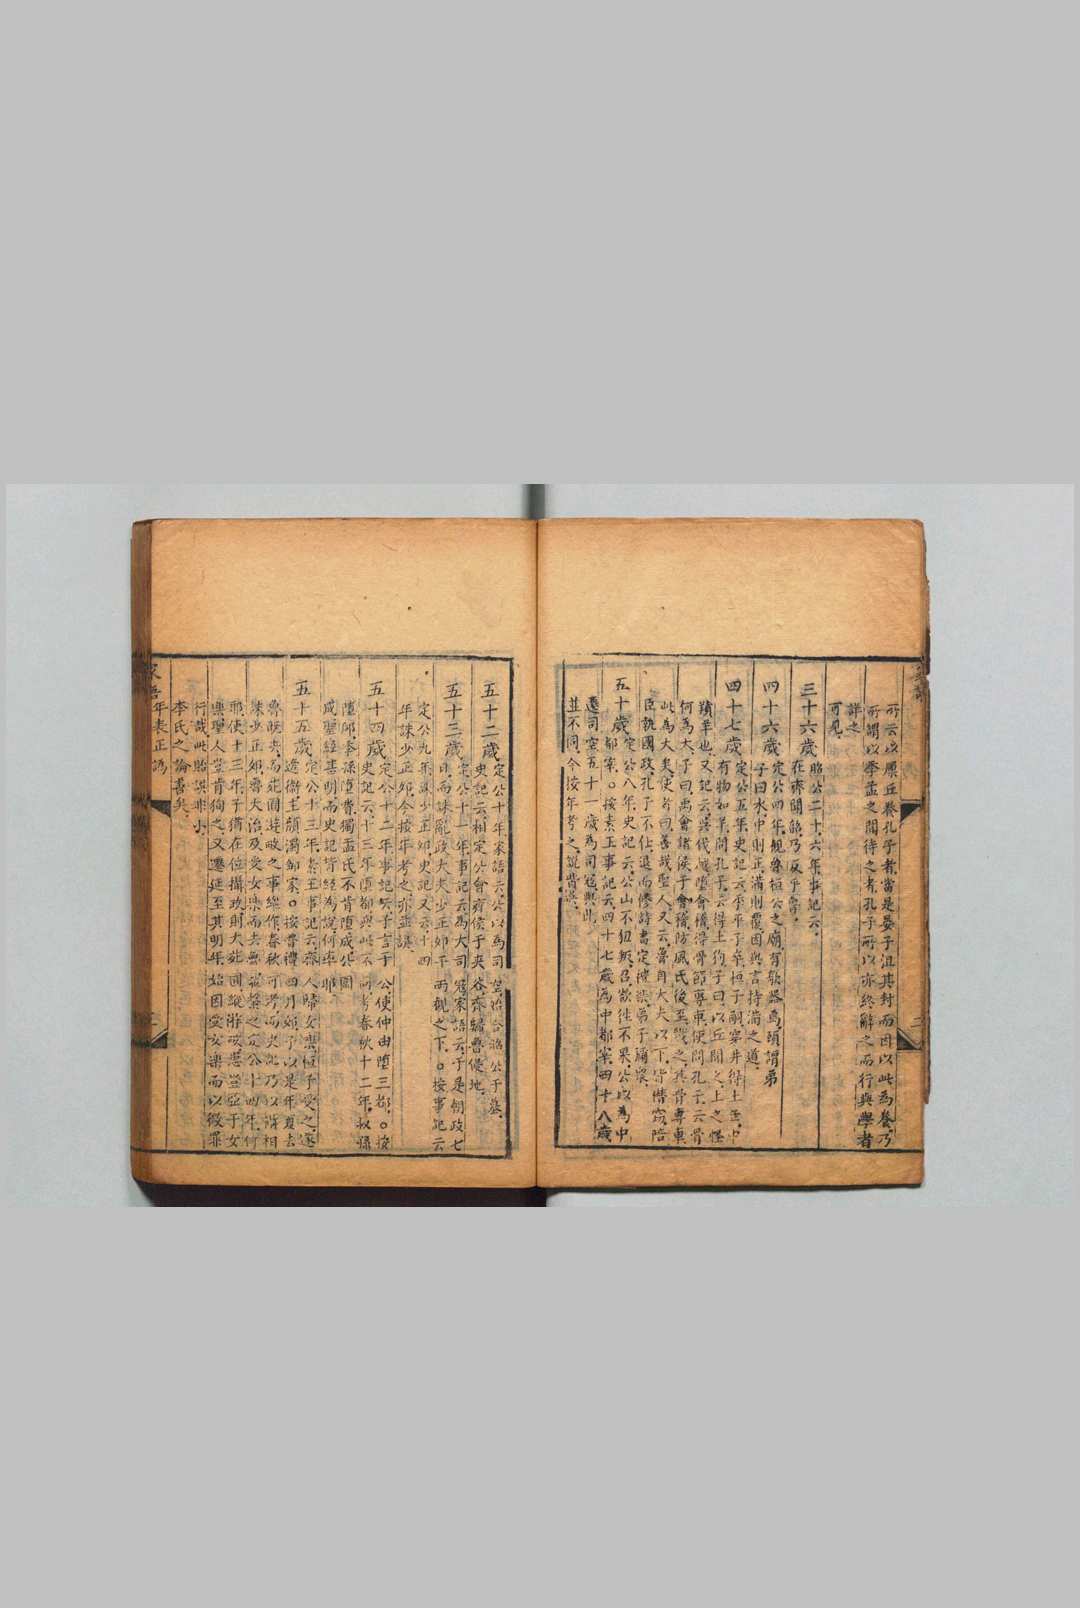 所云以廩丘養孔子者當是晏子沮其封而因以此為養乃
所謂以季孟之間待之者孔子所以亦終辭之而行與學者
詳之
可見
三十六歲昭公二十六年事記云
在齊聞韶乃反乎魯
四十六歲定公四年觀魯桓公之廟有欹器焉顧謂弟
子曰水中則正滿則覆因與言持滿之道
四十七歲定公五年史記云季平子卒桓子嗣穿井得土缶中
有物如羊問孔子云得土狗子曰以丘聞之土之怪
羵羊也又記云吳伐越墮會稽得骨節專車使問孔子云骨
何為大子曰禹會諸侯于會稽防風氏後至戮之其骨專車
此為大矣使者曰善哉聖人又云魯自大夫以下皆僭竊陪
臣執國政孔子不仕退而修詩書定禮樂弟子彌衆
五十歲定公八年史記云公山不狃叛召欲往不果公以為中
都宰。按素王事記云四十七歲為中都宰四十八歲
遷司空五十一歲為司寇與此
並不同今按年考之說皆誤
五十二歲定公十年家語云公以為司空溝合昭公于墓
史記云相定公會齊侯于夾谷齊歸魯侵地
五十三歲定公十一年事記云為大司寇家語云于是朝政七
日而誅亂政大夫少正卯于兩觀之下。按事記云
定公九年誅少正卯史記又云十四
年誅少正卯今按年考之亦並誤
五十四歲定公十二年事記云子言于公使仲由墮三都。按
史記云十三年墮都與此不同考春秋十二年叔孫
墮郈季孫墮費獨孟氏不肯墮成公圍
成聖經甚明而史記皆經為說何率耶
五十五歲定公十三年素王事記云齊人歸女樂桓子受之遂
適衛主顏濁鄒家。按魯禮四月郊子以是年夏去
魯既失而死爾遊畋之事總作春秋可考而史記乃以為相
誅少正卯魯大治及受女樂而去魯於定公十四年何
耶使十三年子猶在位攝政則大蒐田縱游畋惡豈亞于女
樂聖人豈肯徇之又遷延至其明年始因受女樂而以微罪
行哉此貽誤非小
李氏之論善矣
家語年表正譌